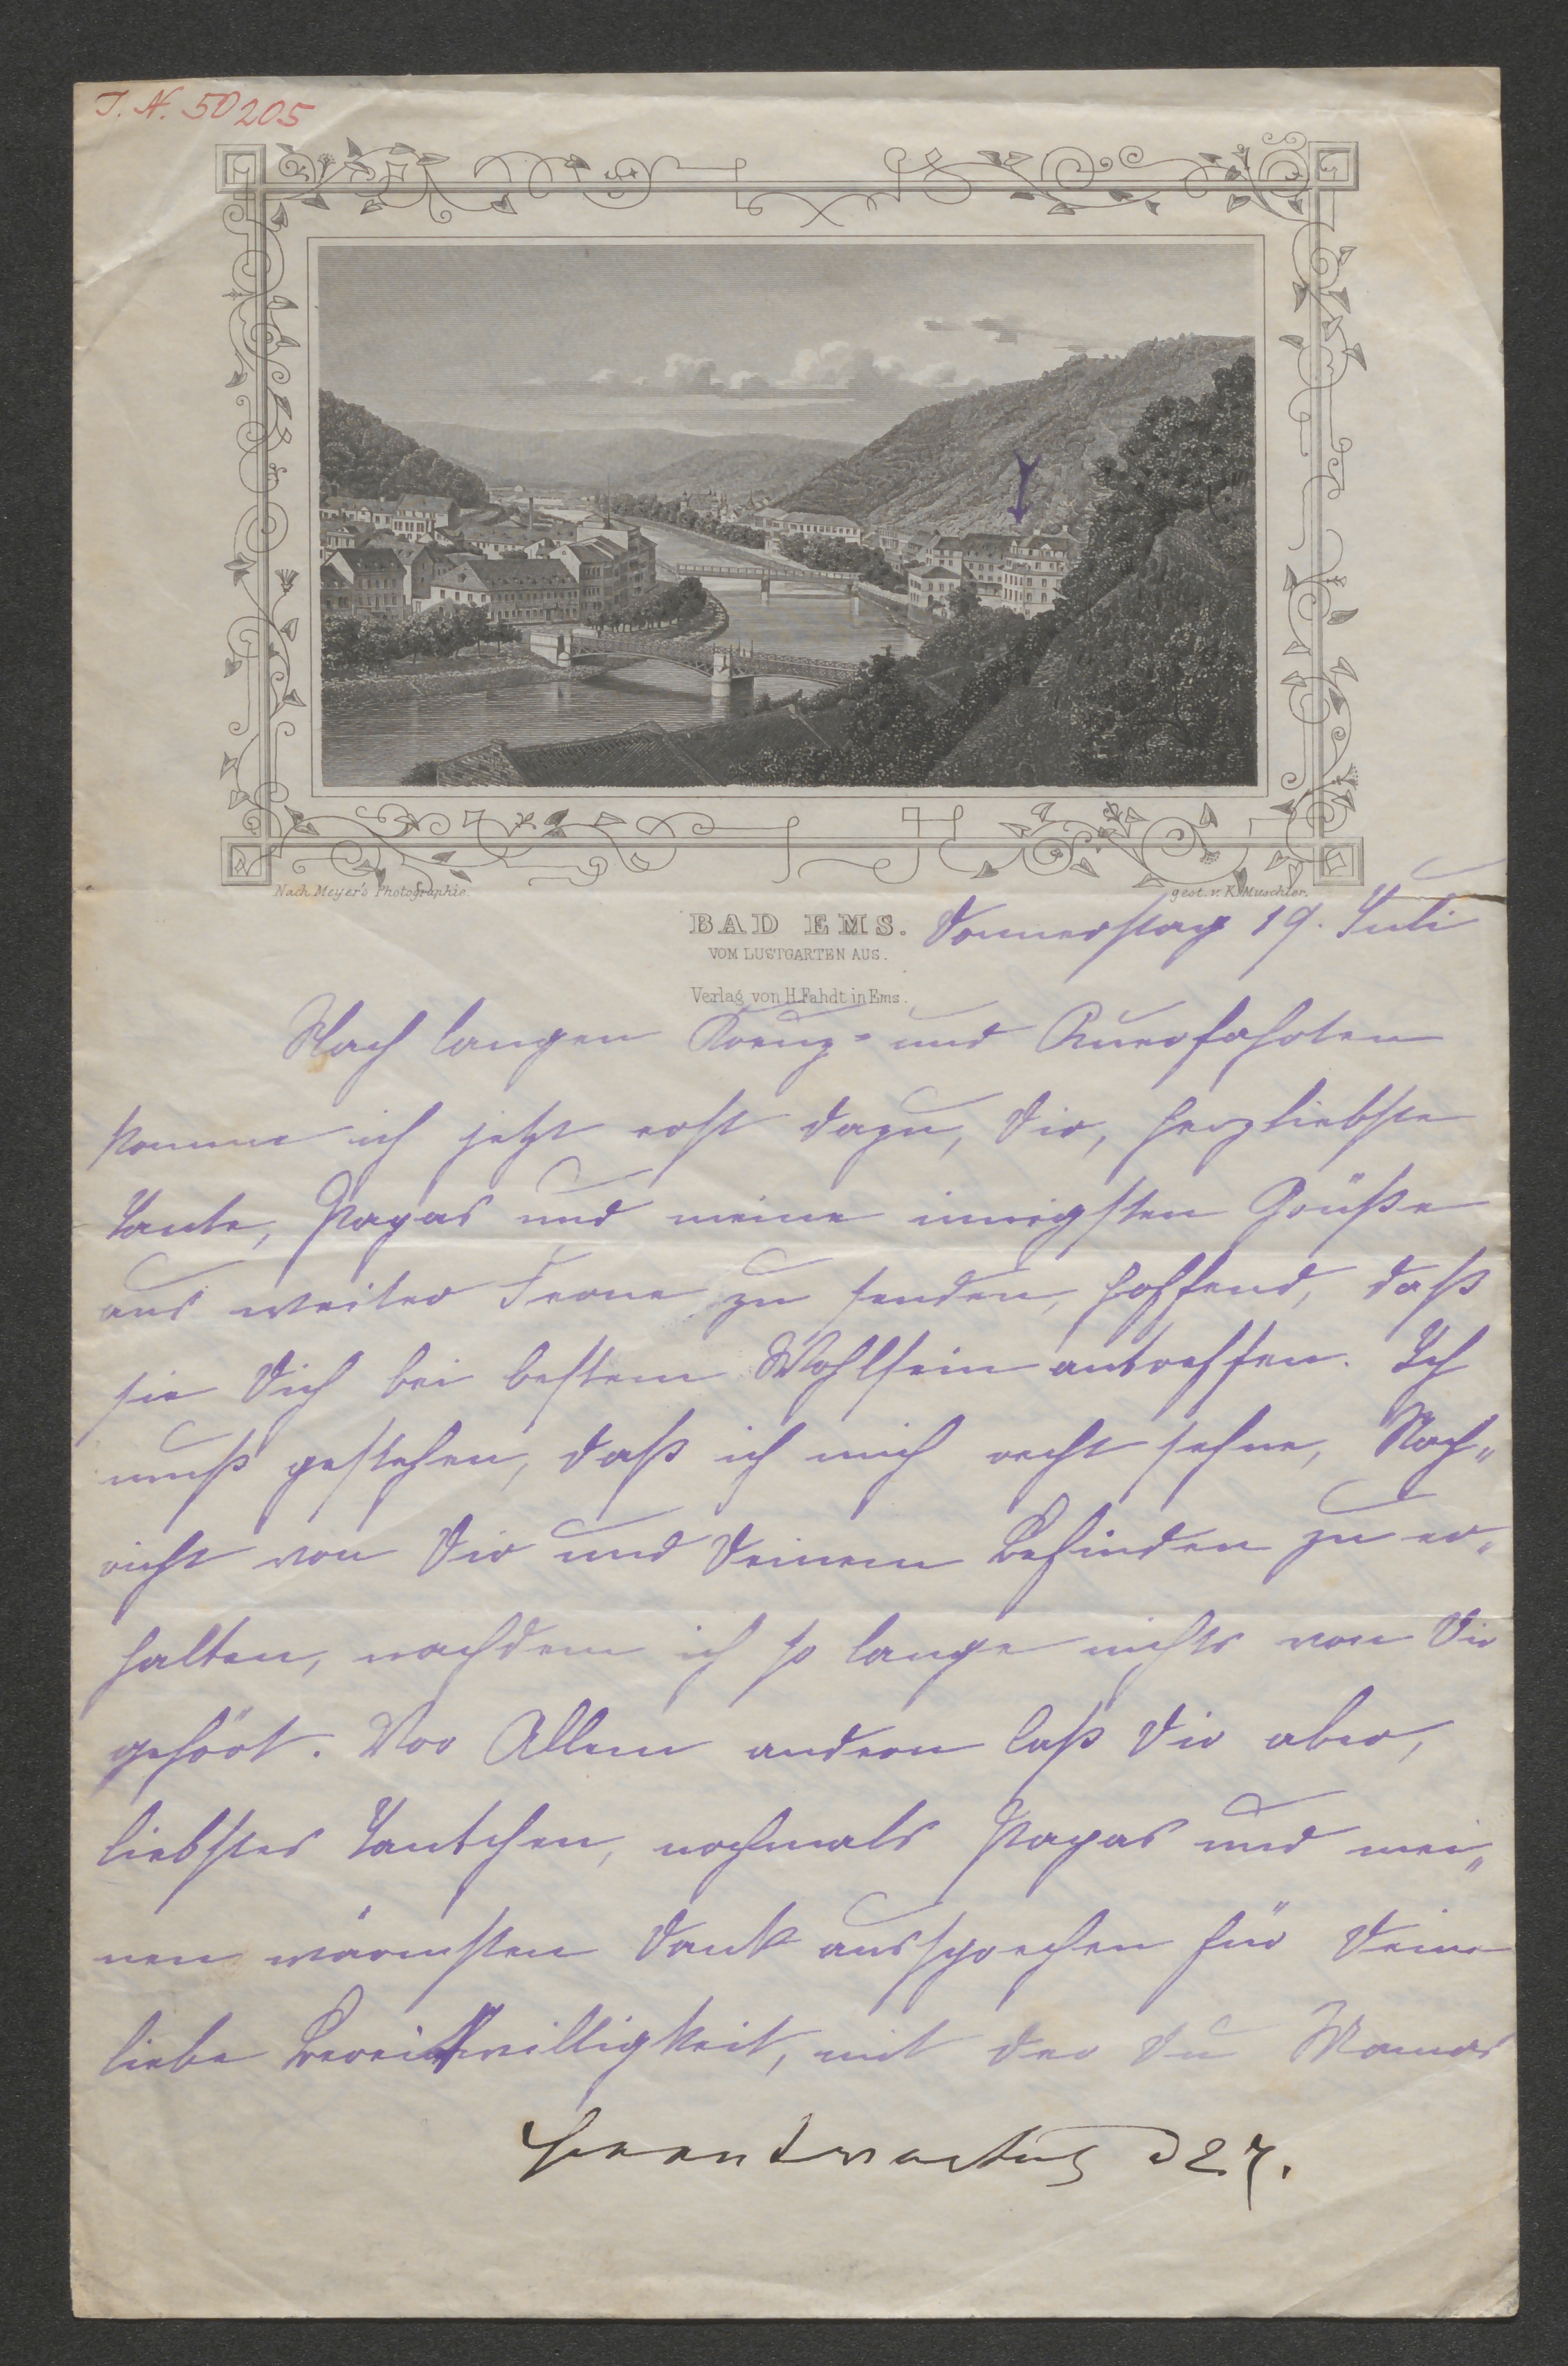 I. N. 50205
Nach Meyer's Photographie
gest. v. K. Muschler.
BAD EMS.
VOM LUSTGARTEN AUS.
Verlag von H. Fahdt in Ems.
Donnerstag 19. Juli
Nach langen Kreuz- und Querfahrten
komme ich jetzt erst dazu, Dir, herzliebste
Tante, Papas und meine innigsten Grüße
aus weiter Ferne zu senden, hoffend, daß
sie Dich bei bestem Wohlsein antreffen. Ich
muß gestehen, daß ich mich recht sehne, Nach„
richt von Dir und Deinem Befinden zu er„
halten, nachdem ich so lange nichts von Dir
gehört. Vor Allem andern laß Dir aber,
liebstes Tantchen, nochmals Papas und mei„
nen wärmsten Dank aussprechen für Deine
liebe Bereitwilligkeit, mit der Du Mamas
27.